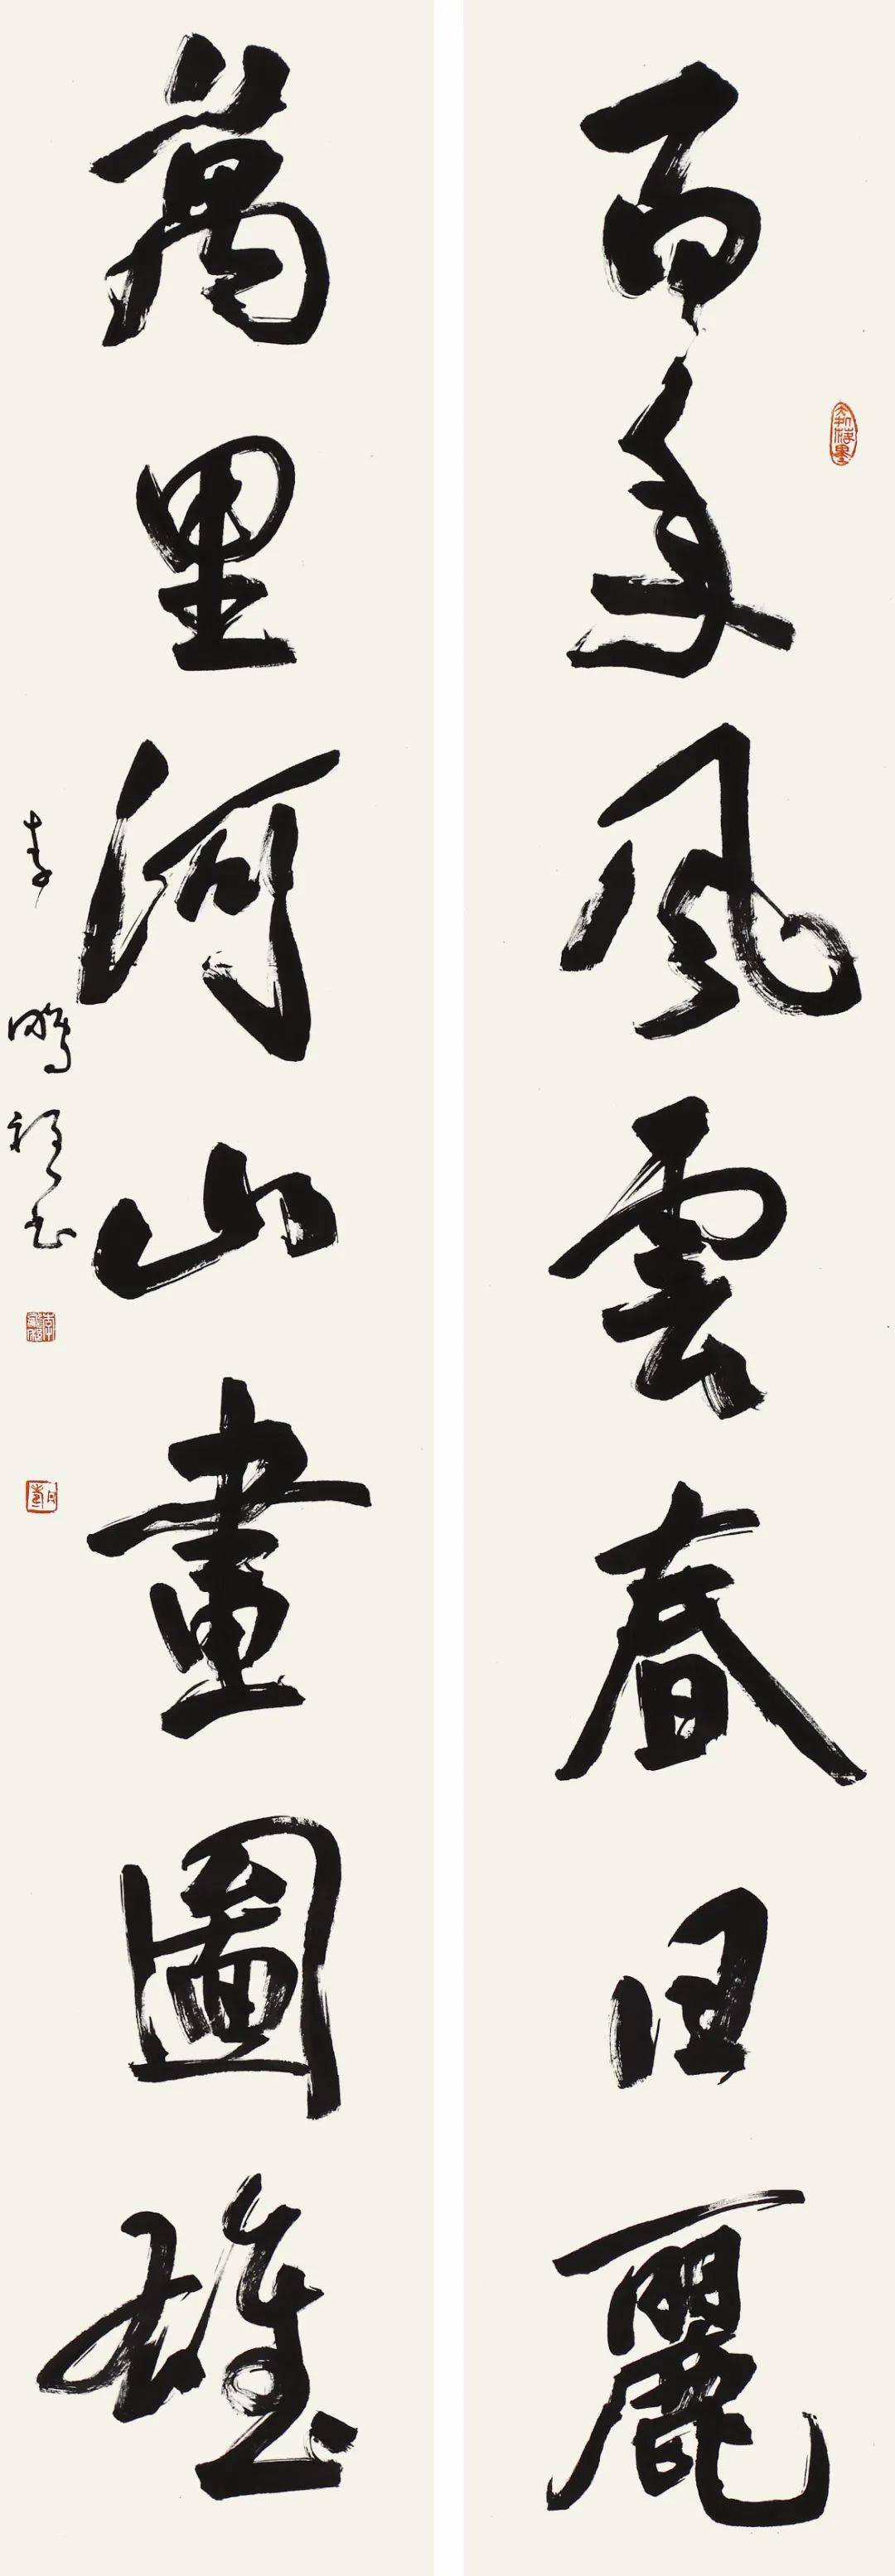 百年風雲春日麗
萬里河山畫圖雄
李鵬程書